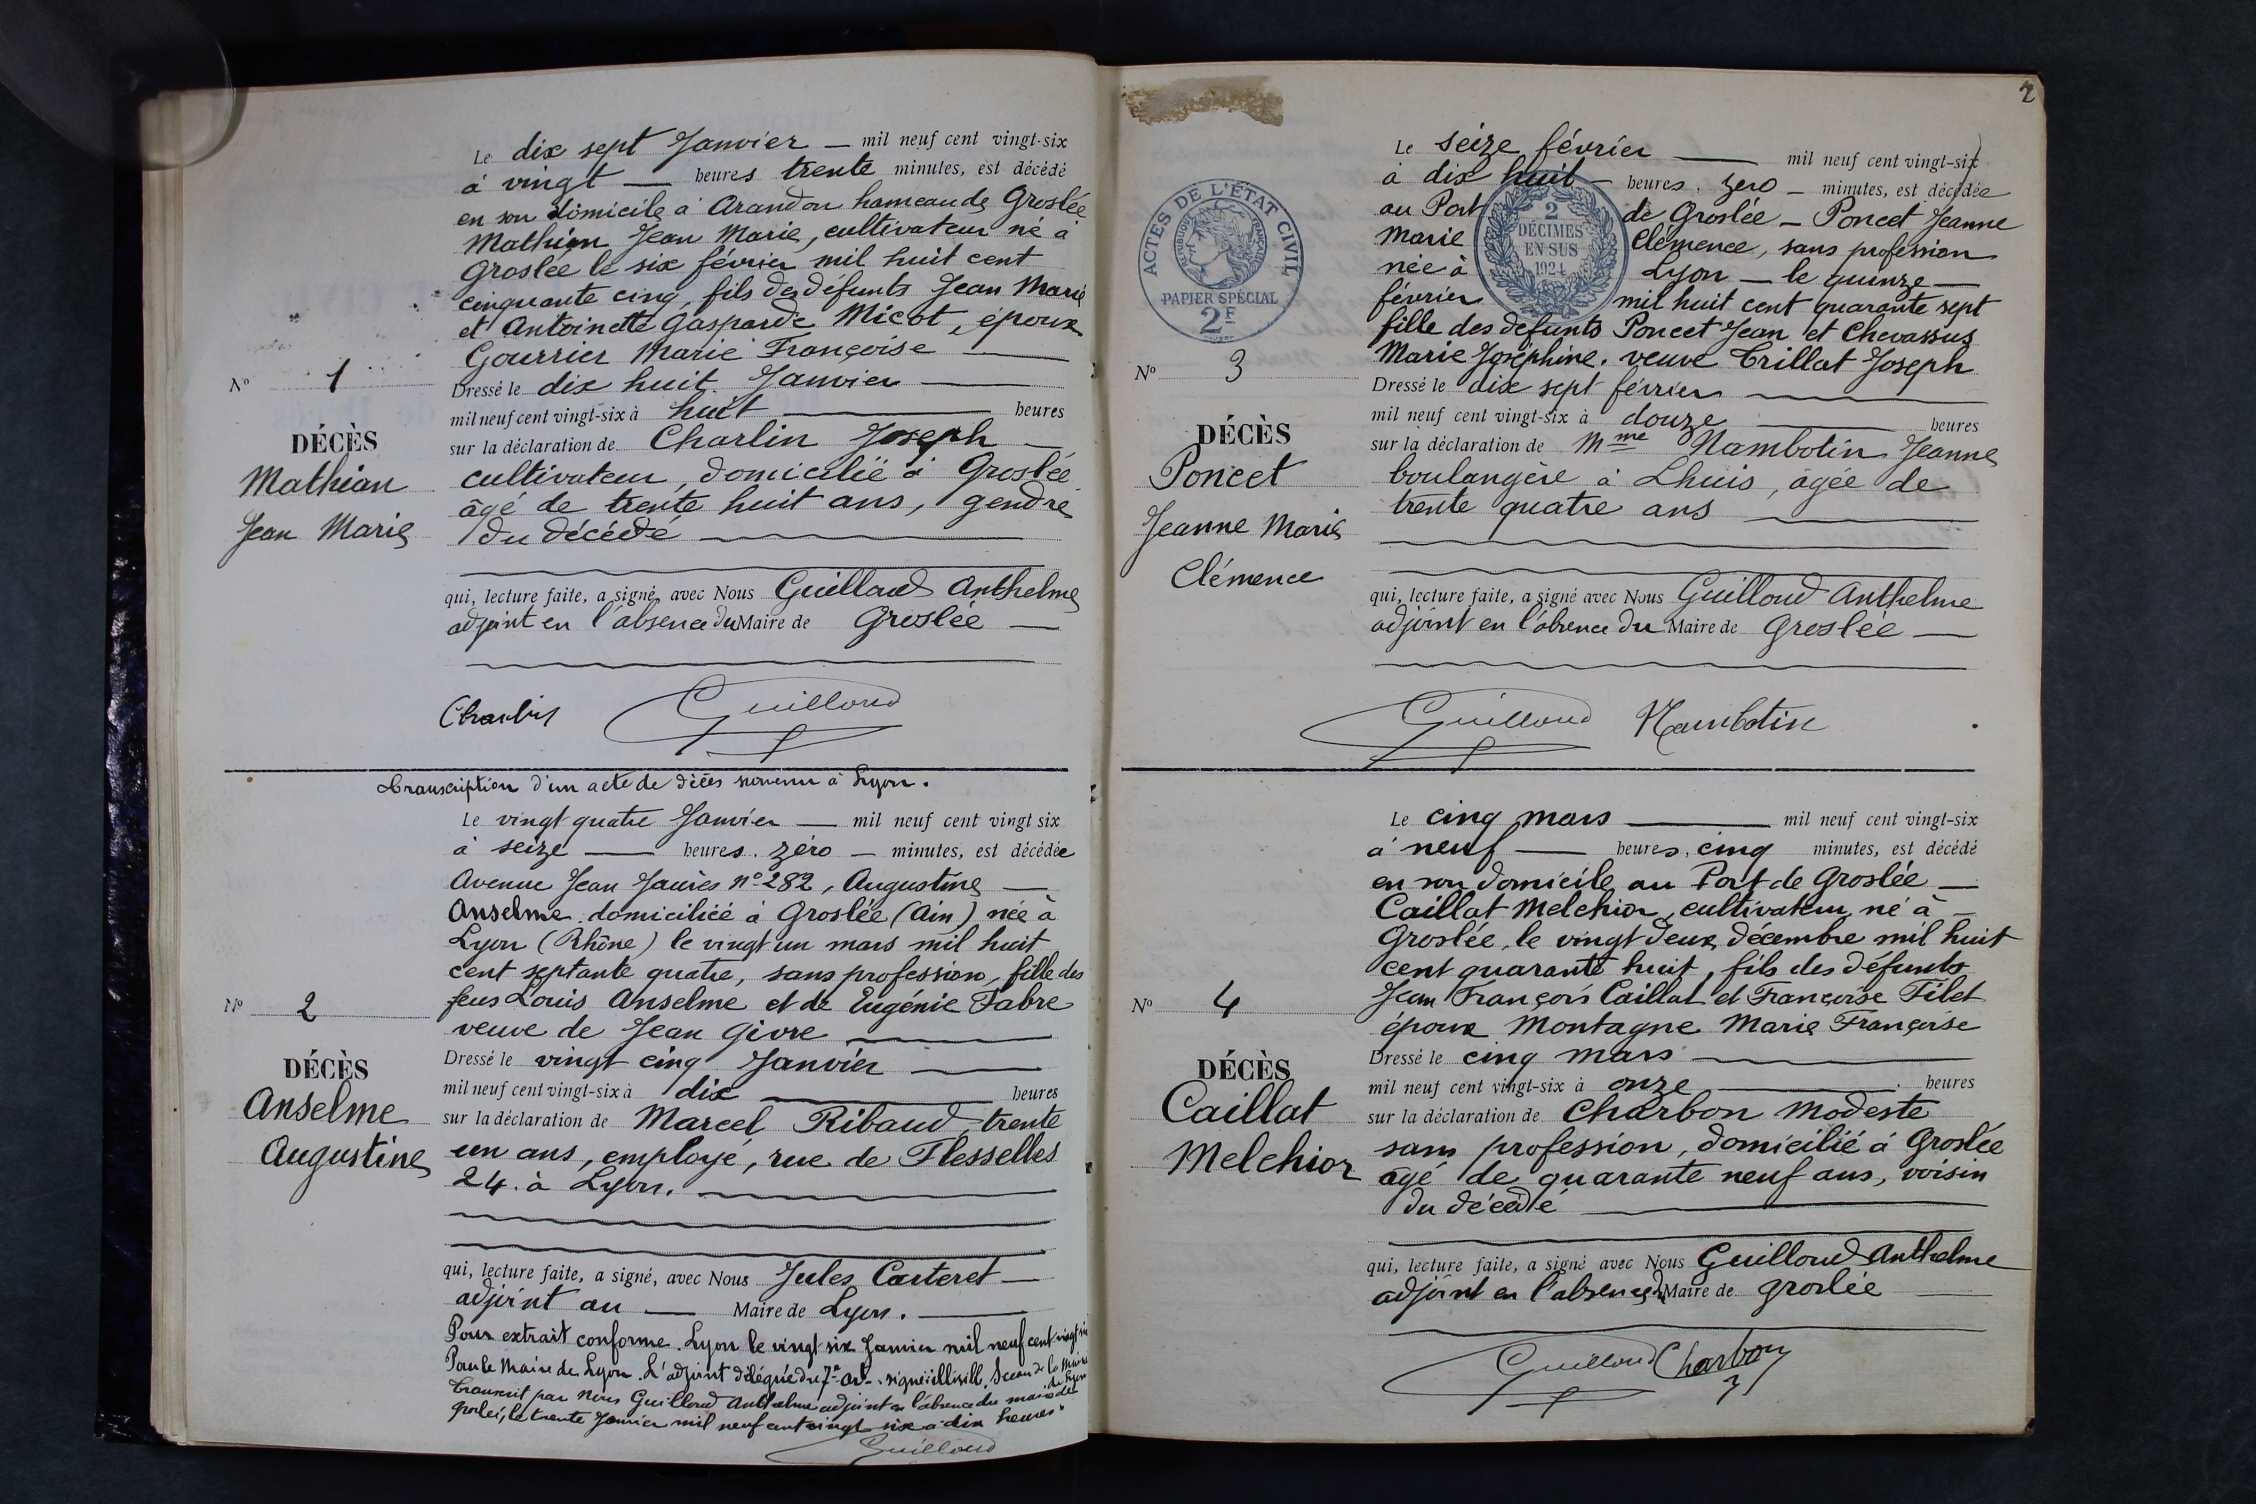 Le dix sept Janvier — mil neuf cent vingt-six
à vingt — heures trente minutes, est décédé
en son domicile à Arandon hameau de Groslée
Mathian Jean Marie, cultivateur né à
Groslée le six février mil huit cent
cinquante cinq, fils des défunts Jean Marie
et Antoinette Gasparde Micot, époux
Gourrier Marie Françoise —
N° 1
Dressé le dix huit Janvier —
mil neuf cent vingt-six à huit — heures
DÉCÈS
sur la déclaration de Charlin Joseph —
Mathian
cultivateur, domicilié à Groslée
Jean Marie
âgé de trente huit ans, gendre
du décédé —
qui, lecture faite, a signé, avec Nous Guilloud Anthelme
adjoint en l'absence du Maire de Groslée —
Charlin Guilloud
Transcription d'un acte de décès survenu à Lyon.
Le vingt quatre Janvier — mil neuf cent vingt six
à seize — heures. zéro — minutes, est décédée
Avenue Jean Jaurès n° 282, Augustine —
Anselme domiciliée à Groslée (Ain) née à
Lyon (Rhône) le vingt un mars mil huit
cent septante quatre, sans profession, fille des
feus Louis Anselme et de Eugénie Fabre
N° 2
veuve de Jean Givre —
Dressé le vingt cinq Janvier —
DÉCÈS
mil neuf cent vingt-six à dix — heures
Anselme
sur la déclaration de Marcel Ribaud, trente
Augustine
un ans, employé, rue de Flesselles
24. à Lyon. —
qui, lecture faite, a signé, avec Nous Jules Carteret —
adjoint au — Maire de Lyon. —
Pour extrait conforme. Lyon le vingt six Janvier mil neuf cent vingt six
Pour le Maire de Lyon. L'adjoint délégué du 7e art. signé: illisible. Sceau de la Mairie
de Lyon
Transcrit par Nous Guilloud Anthelme adjoint en l'absence du maire de
Groslée, le trente Janvier mil neuf cent vingt six à dix heures.
Guilloud
2
Le seize février — mil neuf cent vingt-six
à dix huit — heures. zero — minutes, est décédée
au Port de Groslée — Poncet Jeanne
Marie Clémence, sans profession
née à Lyon — le quinze —
février mil huit cent quarante sept
fille des defunts Poncet Jean et Chevassus
Marie Joséphine. veuve Trillat Joseph
ACTES DE L'ÉTAT CIVIL
RÉPUBLIQUE FRANÇAISE
PAPIER SPÉCIAL
2F
2
DÉCIMES
EN SUS
1924
N° 3
Dressé le dix sept février —
mil neuf cent vingt-six à douze — heures
DÉCÈS
sur la déclaration de Mme Nambotin Jeanne
Poncet
boulangère à Lhuis, âgée de
Jeanne Marie
trente quatre ans —
Clémence
qui, lecture faite, a signé avec Nous Guilloud Anthelme
adjoint en l'absence du Maire de Groslée —
Guilloud Nambotin
Le cinq mars — mil neuf cent vingt-six
à neuf — heures, cinq minutes, est décédé
en son domicile au Port de Groslée —
Caillat Melchior, cultivateur né à —
Groslée, le vingt deux décembre mil huit
cent quarante huit, fils des défunts
Jean François Caillat et Françoise Filet
N° 4
époux Montagne Marie Françoise
Dressé le cinq mars —
DÉCÈS
mil neuf cent vingt-six à onze — heures
Caillat
sur la déclaration de Charbon Modeste
Melchior
sans profession, domicilié à Groslée
âgé de quarante neuf ans, voisin
du décédé —
qui, lecture faite, a signé avec Nous Guilloud Anthelme
adjoint en l'absence du Maire de Groslée —
Guilloud Charbon